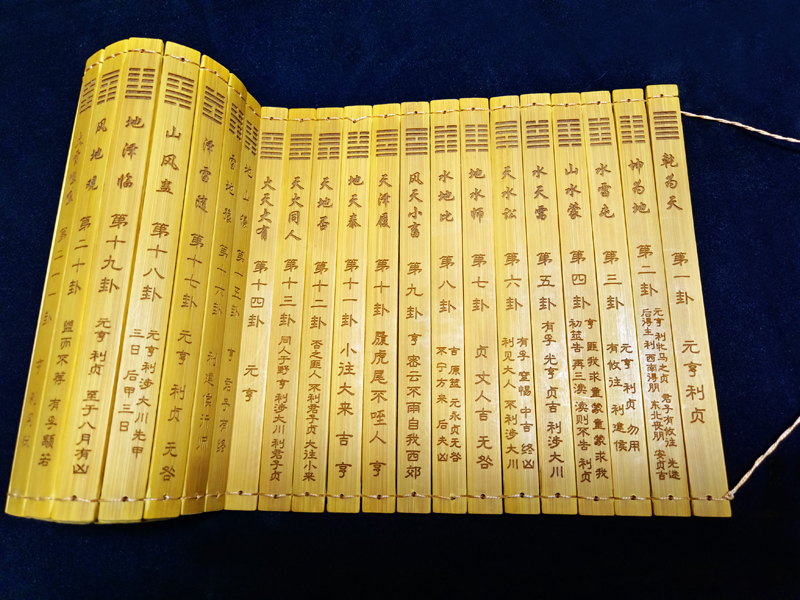 乾为天 第一卦 元亨利贞
坤为地 第二卦 元亨 利牝马之贞 君子有攸往 先迷
后得主利 西南得朋 东北丧朋 安贞吉
水雷屯 第三卦 元亨 利贞 勿用
有攸往 利建侯
山水蒙 第四卦 亨 匪我求童蒙童蒙求我
初筮告 再三渎 渎则不告 利贞
水天需 第五卦 有孚 光亨 贞吉 利涉大川
天水讼 第六卦 有孚 窒惕 中吉 终凶
利见大人 不利涉大川
地水师 第七卦 贞 丈人吉 无咎
水地比 第八卦 吉 原筮 元永贞无咎
不宁方来 后夫凶
风天小畜 第九卦 亨 密云不雨自我西郊
天泽履 第十卦 履虎尾不咥人 亨
地天泰 第十一卦 小往大来 吉 亨
天地否 第十二卦 否之匪人 不利君子贞 大往小来
天火同人 第十三卦 同人于野 亨 利涉大川 利君子贞
火天大有 第十四卦 元亨
地山谦 第十五卦 亨 君子有终
雷地豫 第十六卦 利建侯行师
泽雷随 第十七卦 元亨 利贞 无咎
山风蛊 第十八卦 元亨利涉大川先甲
三日 后甲三日
地泽临 第十九卦 元亨 利贞 至于八月有凶
风地观 第二十卦 盥而不荐 有孚颙若
第二十一卦